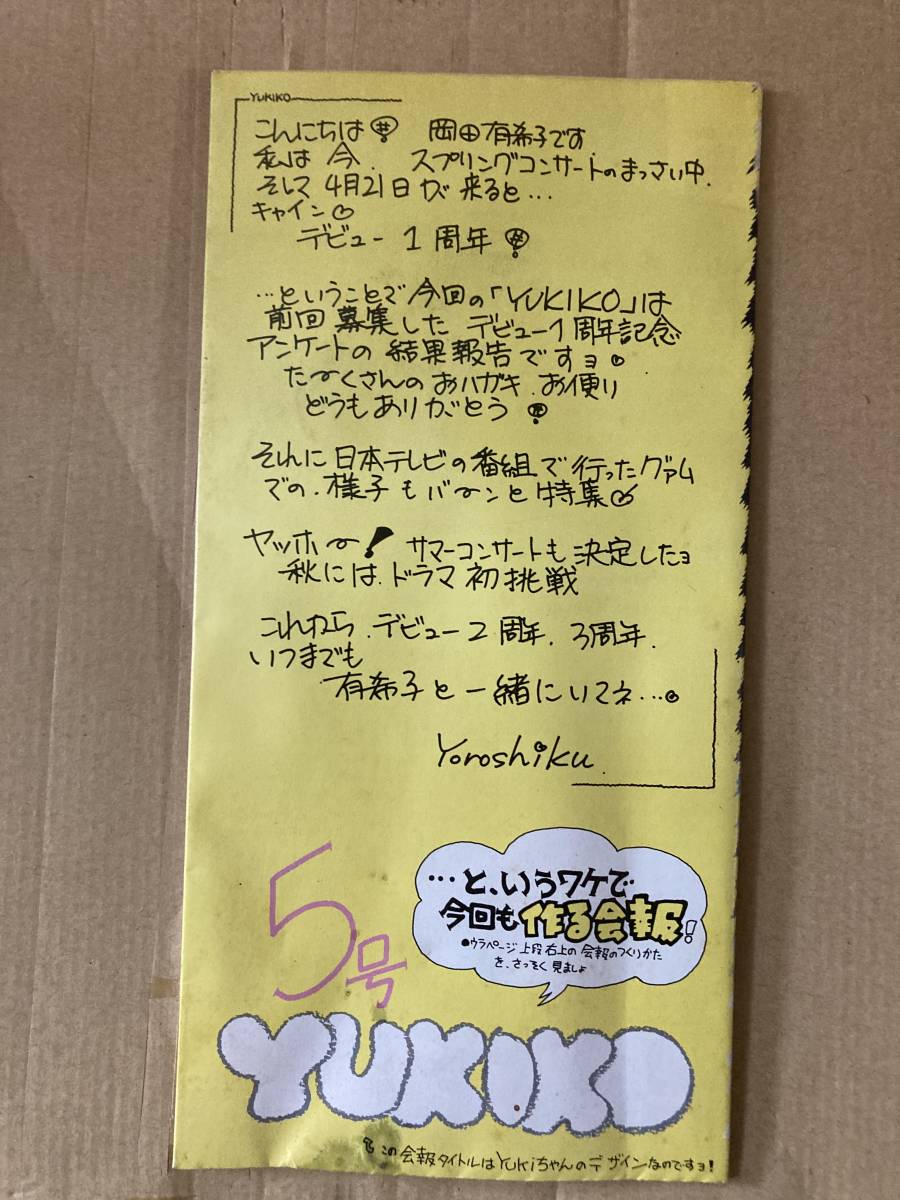 YUKIKO
こんにちは 岡田有希子です
私は 今. スプリングコンサートのまっさい中.
そして 4月21日が 来ると…
キャイン♡
デビュー 1周年
…ということで 今回の「YUKIKO」は
前回 募集した デビュー1周年記念
アンケートの 結果報告ですョ。
た〜くさんの おハガキ.お便り
どうもありがとう
それに 日本テレビの番組で行ったグァム
での.様子もバ〜ンと特集
ヤッホ〜! サマーコンサートも決定したョ
秋には.ドラマ初挑戦
これから.デビュー2周年.3周年.
いつまでも
有希子と一緒にいてネ…。
Yoroshiku.
5号
…と、いうワケで
今回も作る会報!
●ウラページ上段右上の会報のつくりかた
を、さっそく見ましょ
YUKIKO
この会報タイトルはYukiちゃんのデザインなのですョ!